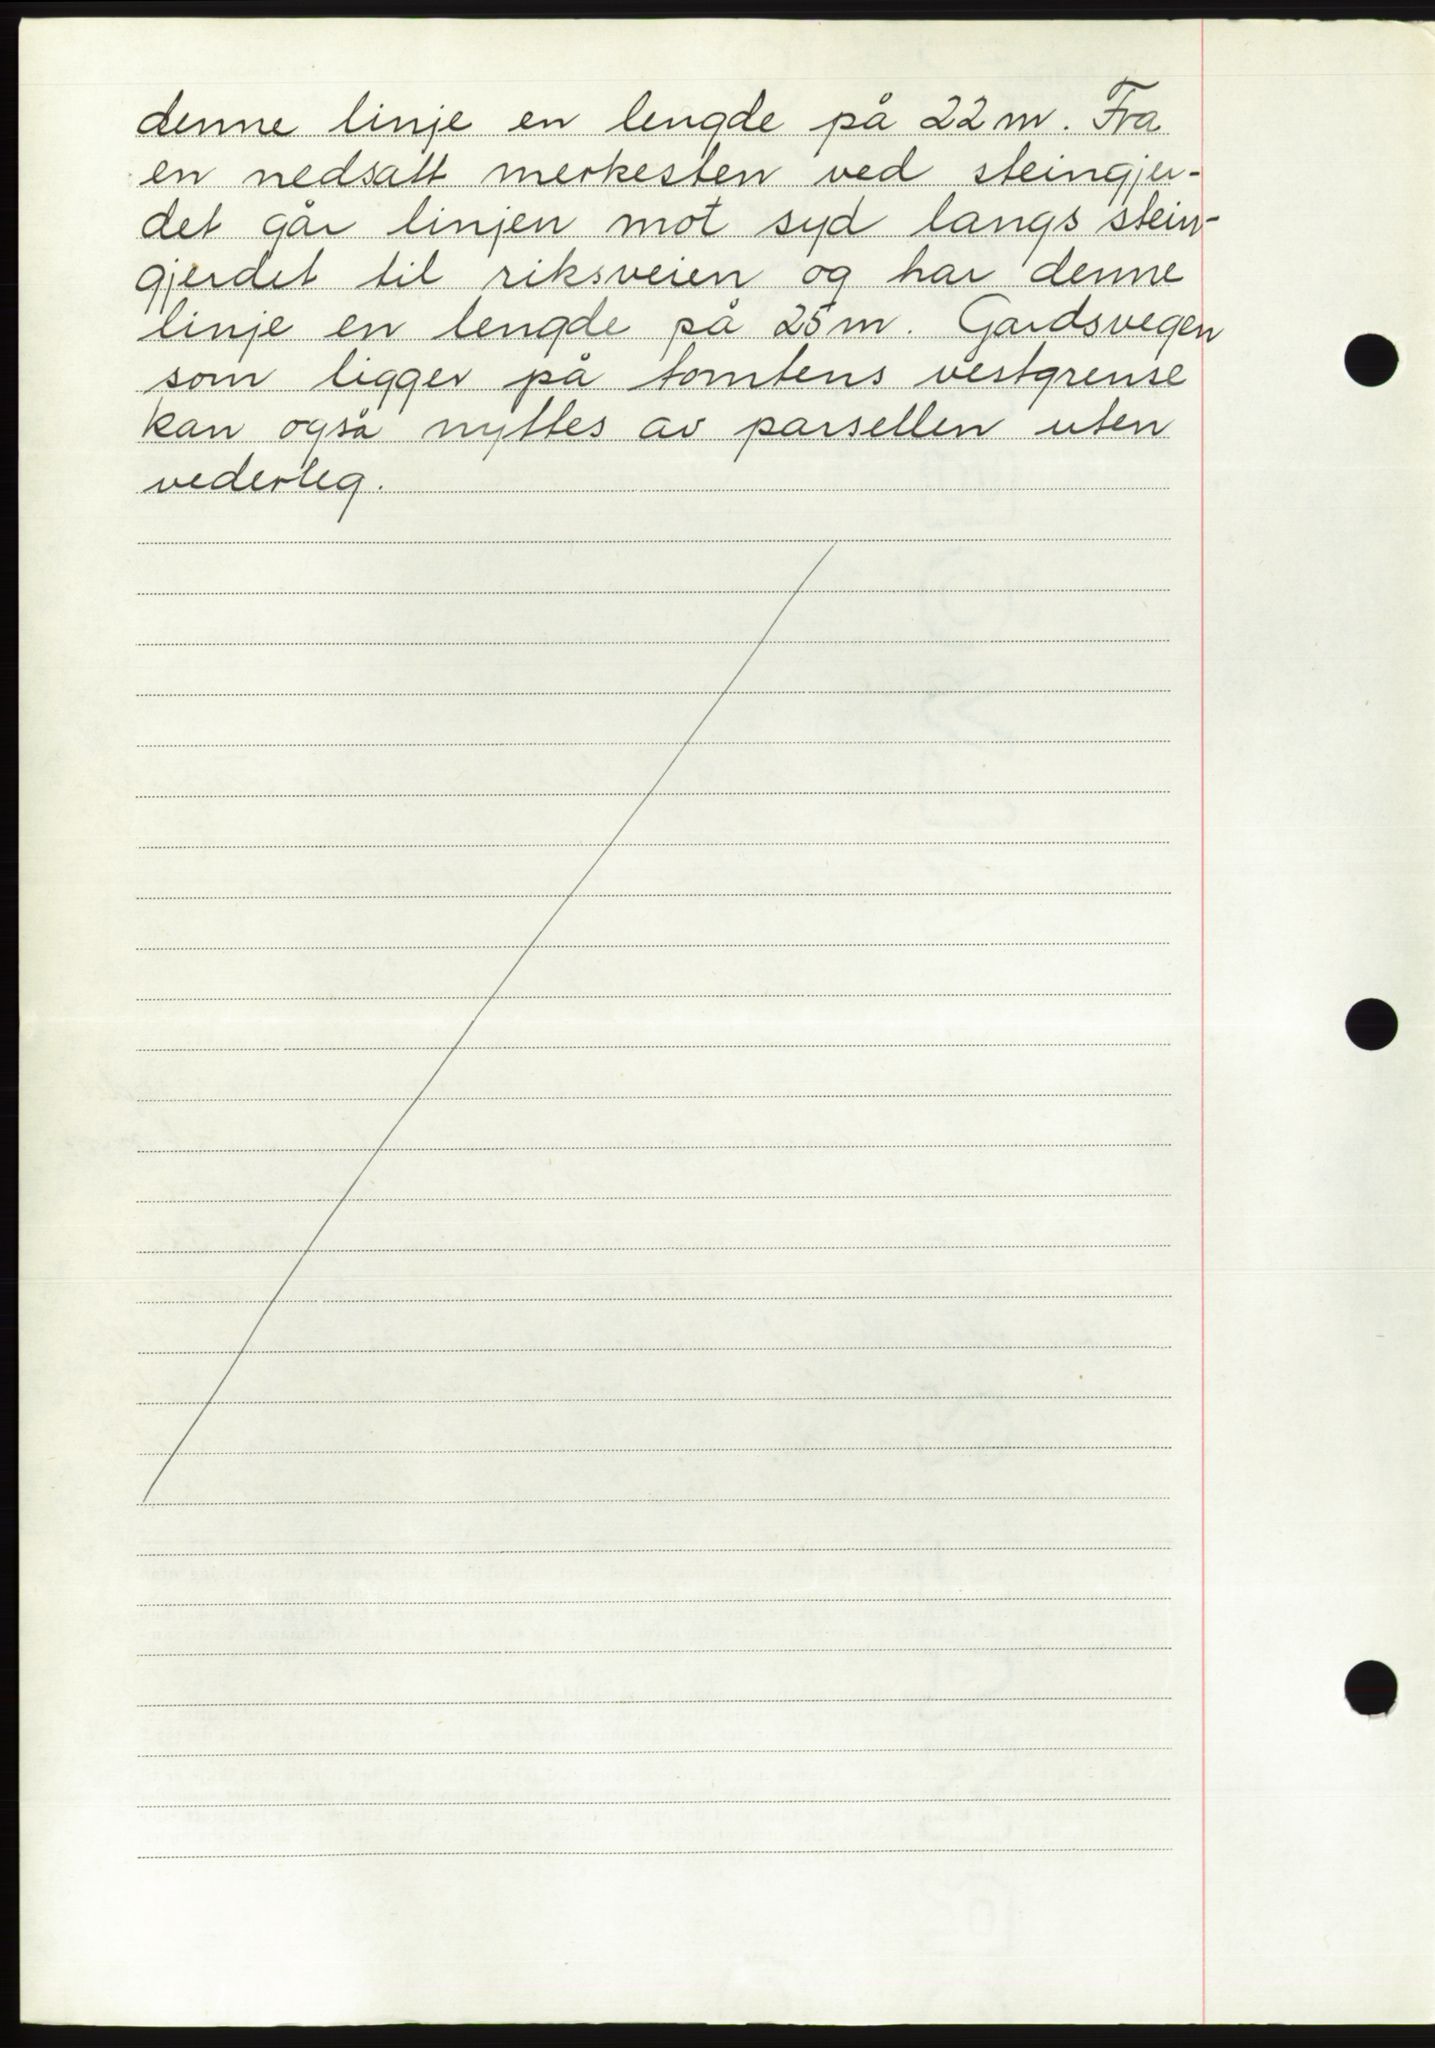 denne linje en lengde på 22 m. Fra
en nedsatt merkesten ved steingjer-
det går linjen mot syd langs stein-
gjerdet til riksveien og har denne
linje en lengde på 25 m. Gardsvegen
som ligger på tomtens vestgrense
kan også nyttes av parsellen uten
vederleg.